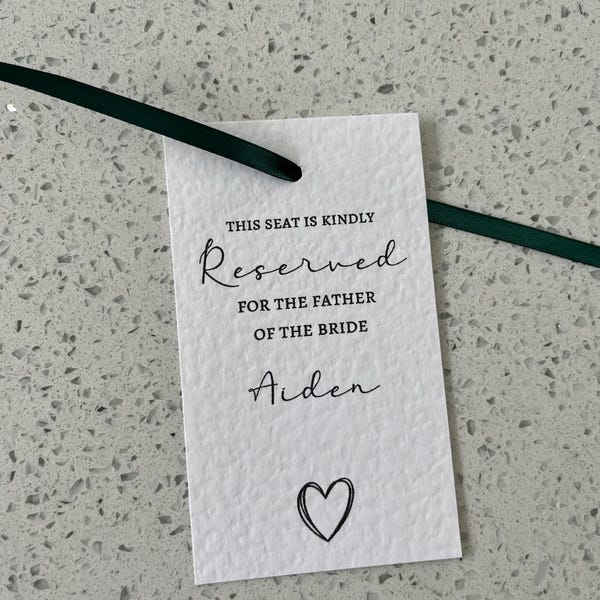 THIS SEAT IS KINDLY
Reserved
FOR THE FATHER
OF THE BRIDE
Aiden